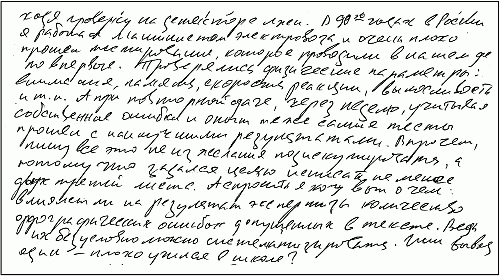 ходя проверку на детекторе лжи. В 90ых годах в России
я работал машинистом электровоза и очень плохо
прошел тестирование, которое проводили в нашем де
по впервые. Проверялись физические параметры:
внимание, память, скорость реакции, выносливость
и т.п. А при повторной сдаче, через неделю, учитывая
собственные ошибки и опыт те же самые тесты
прошел с наилучшими результатами. Впрочем,
пишу все это не из желания подискутировать, а
потому что задался целью исписать не менее
двух третей листа. А спросить я хочу вот о чем:
влияет ли на результат экспертизы количество
орфографических ошибок допущенных в тексте. Ведь
их безусловно можно систематизировать. Или вывод
один – плохо учился в школе?